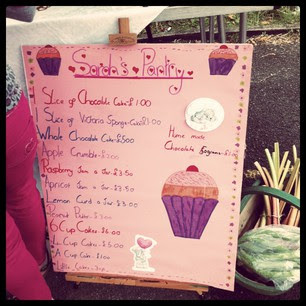 Sarah's Pantry
Slice of Chocolate Cake-£1.00
1 Slice of Victoria Sponge Cake-£1.00
Whole Chocolate Cake-£5.00
Apple Crumble-£2.00
Raspberry Jam a Jar-£2.50
Apricot Jam a Jar-£2.50
Lemon Curd a Jar-£3.50
£3.00
6 Cup Cakes £6.00
Cup Cakes-£5.00
A Cup Cake-£1.00
Home made
Chocolate